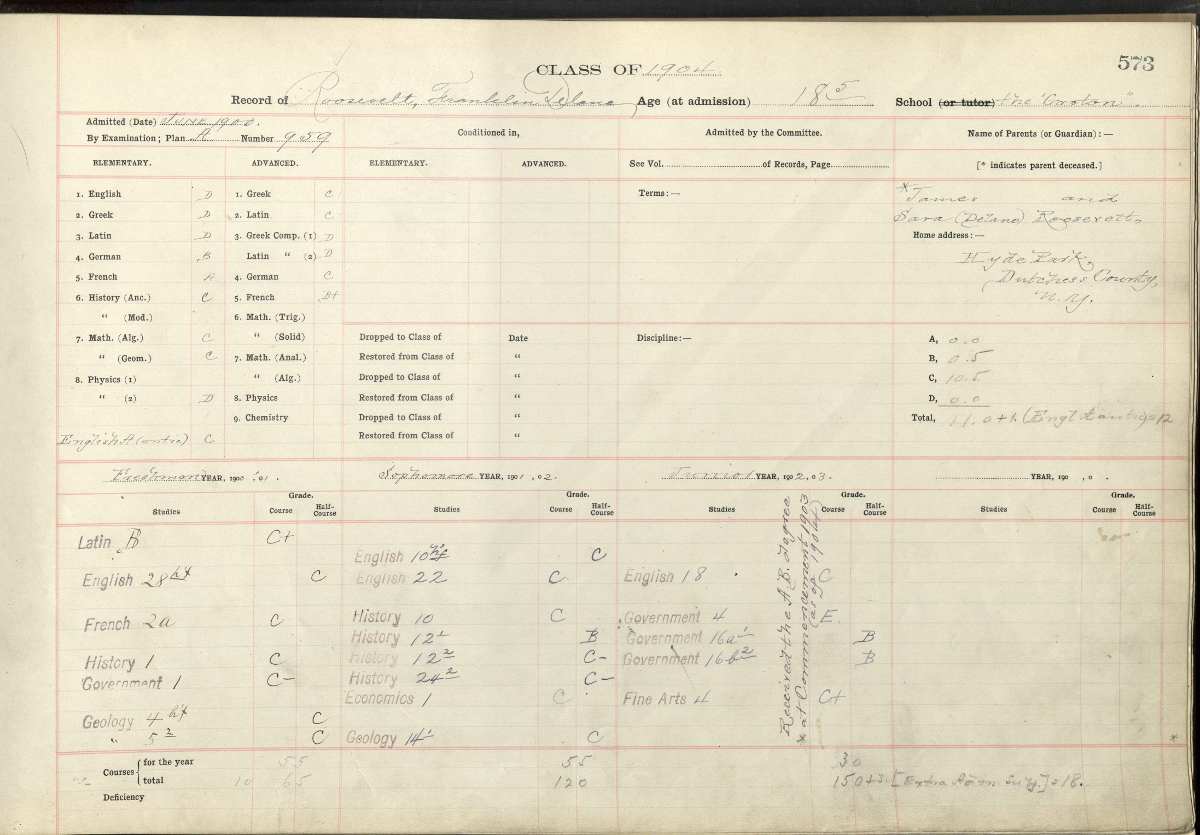 573
CLASS OF 1904
Record of Roosevelt, Franklin Delano Age (at admission) 18 5 School (or tutor) the "Groton".
Admitted (Date) June 1900.
By Examination; Plan A Number 939
Conditioned in,
Admitted by the Committee.
Name of Parents (or Guardian): —
ELEMENTARY. ADVANCED. ELEMENTARY. ADVANCED. See Vol. of Records, Page [* indicates parent deceased.]
1. English D 1. Greek C Terms: — *James and
2. Greek D 2. Latin C Sara (Delano) Roosevelt,
3. Latin D 3. Greek Comp. (1) D Home address: —
4. German B Latin " (2) D Hyde Park,
5. French A 4. German C Dutchess County,
6. History (Anc.) C 5. French B+ N.Y.
" (Mod.) 6. Math. (Trig.)
7. Math. (Alg.) C " (Solid) Dropped to Class of Date Discipline: — A, 0.0
" (Geom.) C 7. Math. (Anal.) Restored from Class of " B, 0.5
8. Physics (1) " (Alg.) Dropped to Class of " C, 10.5
" (2) D 8. Physics Restored from Class of " D, 0.0
9. Chemistry Dropped to Class of " Total, 11.0 + 1
English A (antic) C Restored from Class of "
Freshman YEAR, 1900-'01. Sophomore YEAR, 1901-02. Junior YEAR, 1902-03. YEAR, 190 -0 .
Grade. Grade. Grade. Grade.
Studies Course Half-Course Studies Course Half-Course Studies Course Half-Course Studies Course Half-Course
Latin B C+
English 10 hf C
English 28 hf C English 22 C English 18 C
French 2a C History 10 C Government 4 E
History 12 1 B Government 16a 1 B
History 1 C History 12 2 C- Government 16b 2 B
Government 1 C- History 24 2 C-
Economics 1 C Fine Arts 4 C+
Geology 4 hf C
" 5 2 C Geology 14 1 C
Received the A.B. Degree
* at Commencement 1903
(as of 1904)
*
Courses for the year 55 55 30
total 10 65 120 150
Deficiency